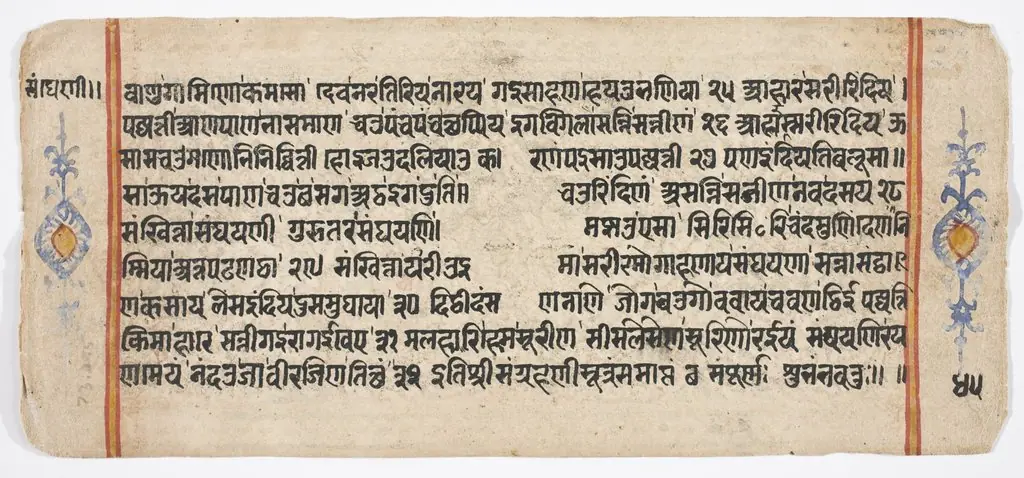 संघयणी॥
वाणुगामिणो कमासो देवनरतिरियनारय गइसाहणाहय २५ आहारसरीरिंदिय।
पज्जत्तीआणपाण चउपंचपंचछप्पिय इगविगलासन्निसन्नीणं २६ सरीरिंदिय ऊ
होइजउदलियाउ क। रणंपइसाउपज्जत्ती २७ पणइंदियतिबलूसा॥
साऊयदसपाण चउछसगअठइगदुति॥ चउरिंदिणं असन्निसन्नीणनवदसय २८
संखित्तासंघयणी गुरुतरसंघयणि। मज्झउएसा सिरिसि
म्मियाअत्तपढणठा २९ संखित्तायरीउइ मासरीरमोगाहणायसंघयणा सन्नासंठा।
णकसाय लेसइंदियदुसमुघाया ३० दिठीदंस णनाणे जोगवउगोववायचवणठिई पज्जत्ति
किमाहार सन्नीगइरागईवेए ३१ मलहारिहेमसूरीण सीसलेसेणसूरिणारईयं संघयणिरय
णामेयं नंदउजावीरजिणतित्थं ३२ इतिश्रीसंग्रहणीसूत्रंसमाप्तं ठ संपूर्णः शुभंभवतुः॥ ॥
४५